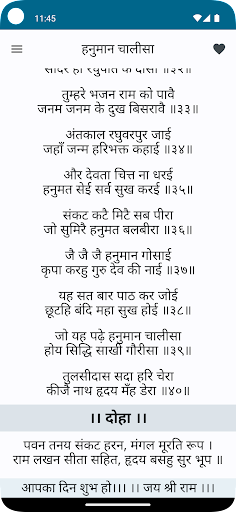 11:45
हनुमान चालीसा
सादर हो रघुपति के दासा ॥३२॥
तुम्हरे भजन राम को पावै
जनम जनम के दुख बिसरावै ॥३३॥
अंतकाल रघुवरपुर जाई
जहाँ जन्म हरिभक्त कहाई ॥३४॥
और देवता चित्त ना धरई
हनुमत सेई सर्व सुख करई ॥३५॥
संकट कटै मिटै सब पीरा
जो सुमिरै हनुमत बलबीरा ॥३६॥
जै जै जै हनुमान गोसाई
कृपा करहु गुरु देव की नाई ॥३७॥
यह सत बार पाठ कर जोई
छूटहि बंदि महा सुख होई ॥३८॥
जो यह पढ़े हनुमान चालीसा
होय सिद्धि साखी गौरीसा ॥३९॥
तुलसीदास सदा हरि चेरा
कीजै नाथ हृदय मँह डेरा ॥४०॥
।। दोहा ।।
पवन तनय संकट हरन, मंगल मूरति रूप ।
राम लखन सीता सहित, हृदय बसहु सुर भूप ॥
आपका दिन शुभ हो।।। ।। जय श्री राम ।।।